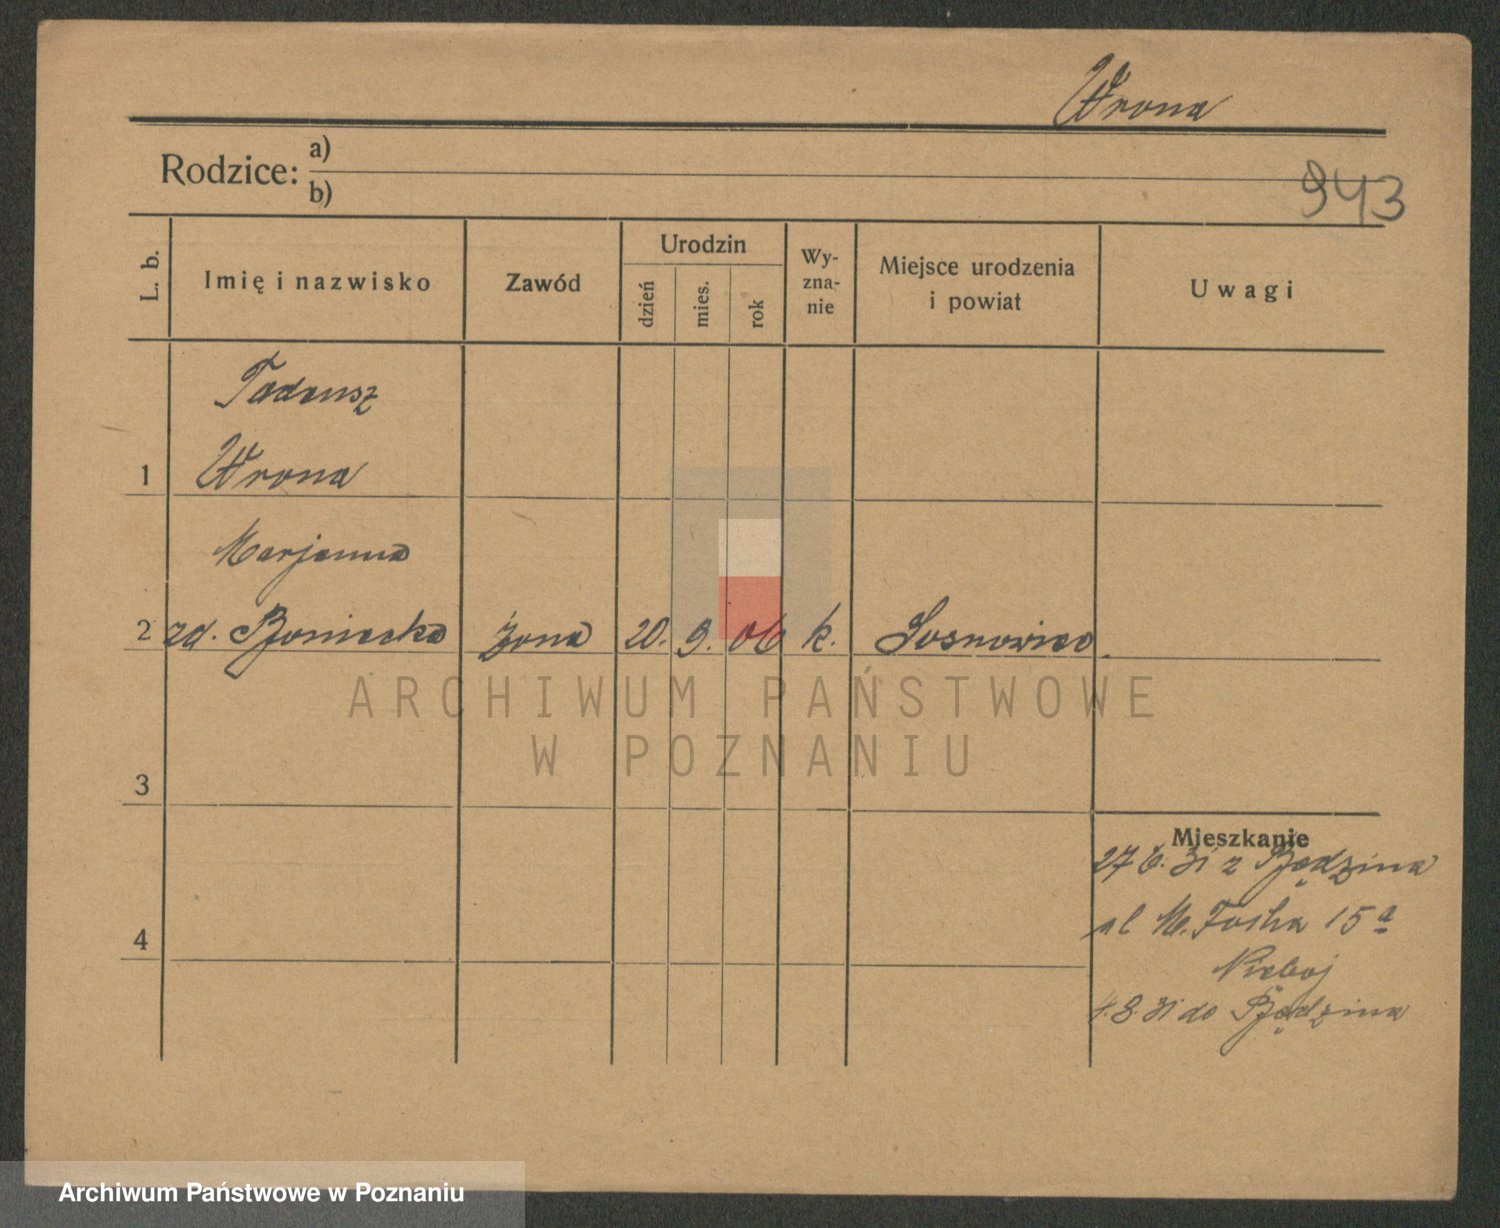 Wrona
Rodzice: a)
b)
943
L. b.
Imię i nazwisko
Zawód
Urodzin
dzień
mies.
rok
Wy-
zna-
nie
Miejsce urodzenia
i powiat
Uwagi
Tadeusz
1 Wrona
Marjanna
2 zd. Boniecka żona 20. 9. 06 k. Sosnowiec
ARCHIWUM PAŃSTWOWE
W POZNANIU
3
Mieszkanie
27 6. 31 z Będzina
ul M. Focha 15 a
4
8. 31 do Będzina
Archiwum Państwowe w Poznaniu